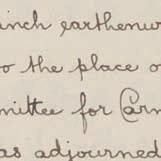 inch earthenw
o the place o
mittee for Carn
as adjourned